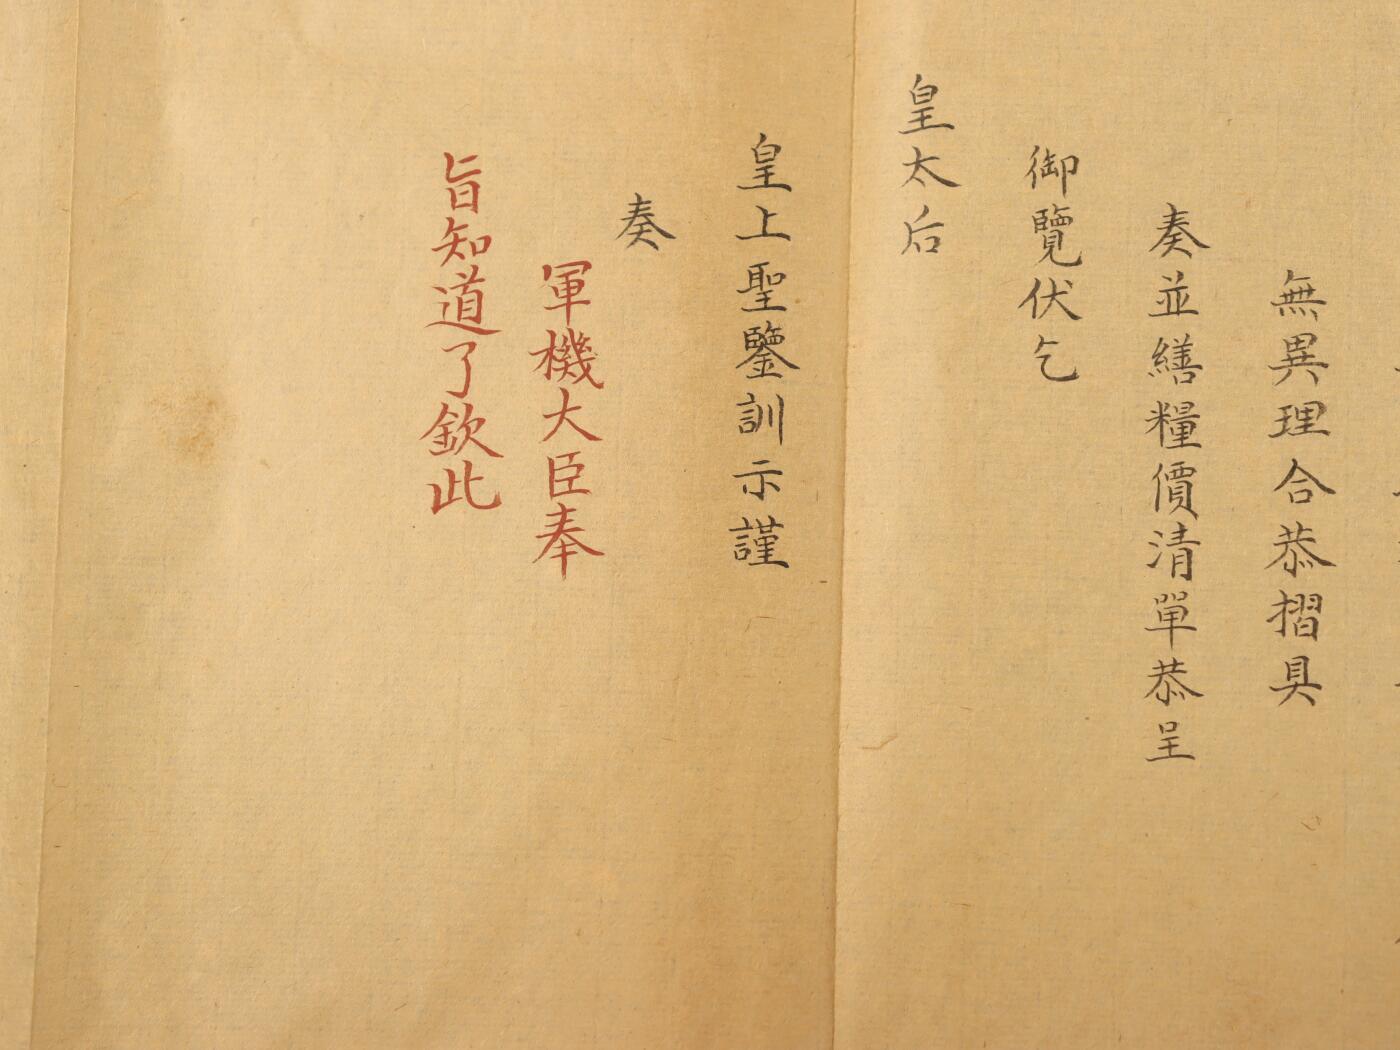 無異理合恭摺具
奏並繕糧價清單恭呈
御覽伏乞
皇太后
皇上聖鑒訓示謹
奏
軍機大臣奉
旨知道了欽此